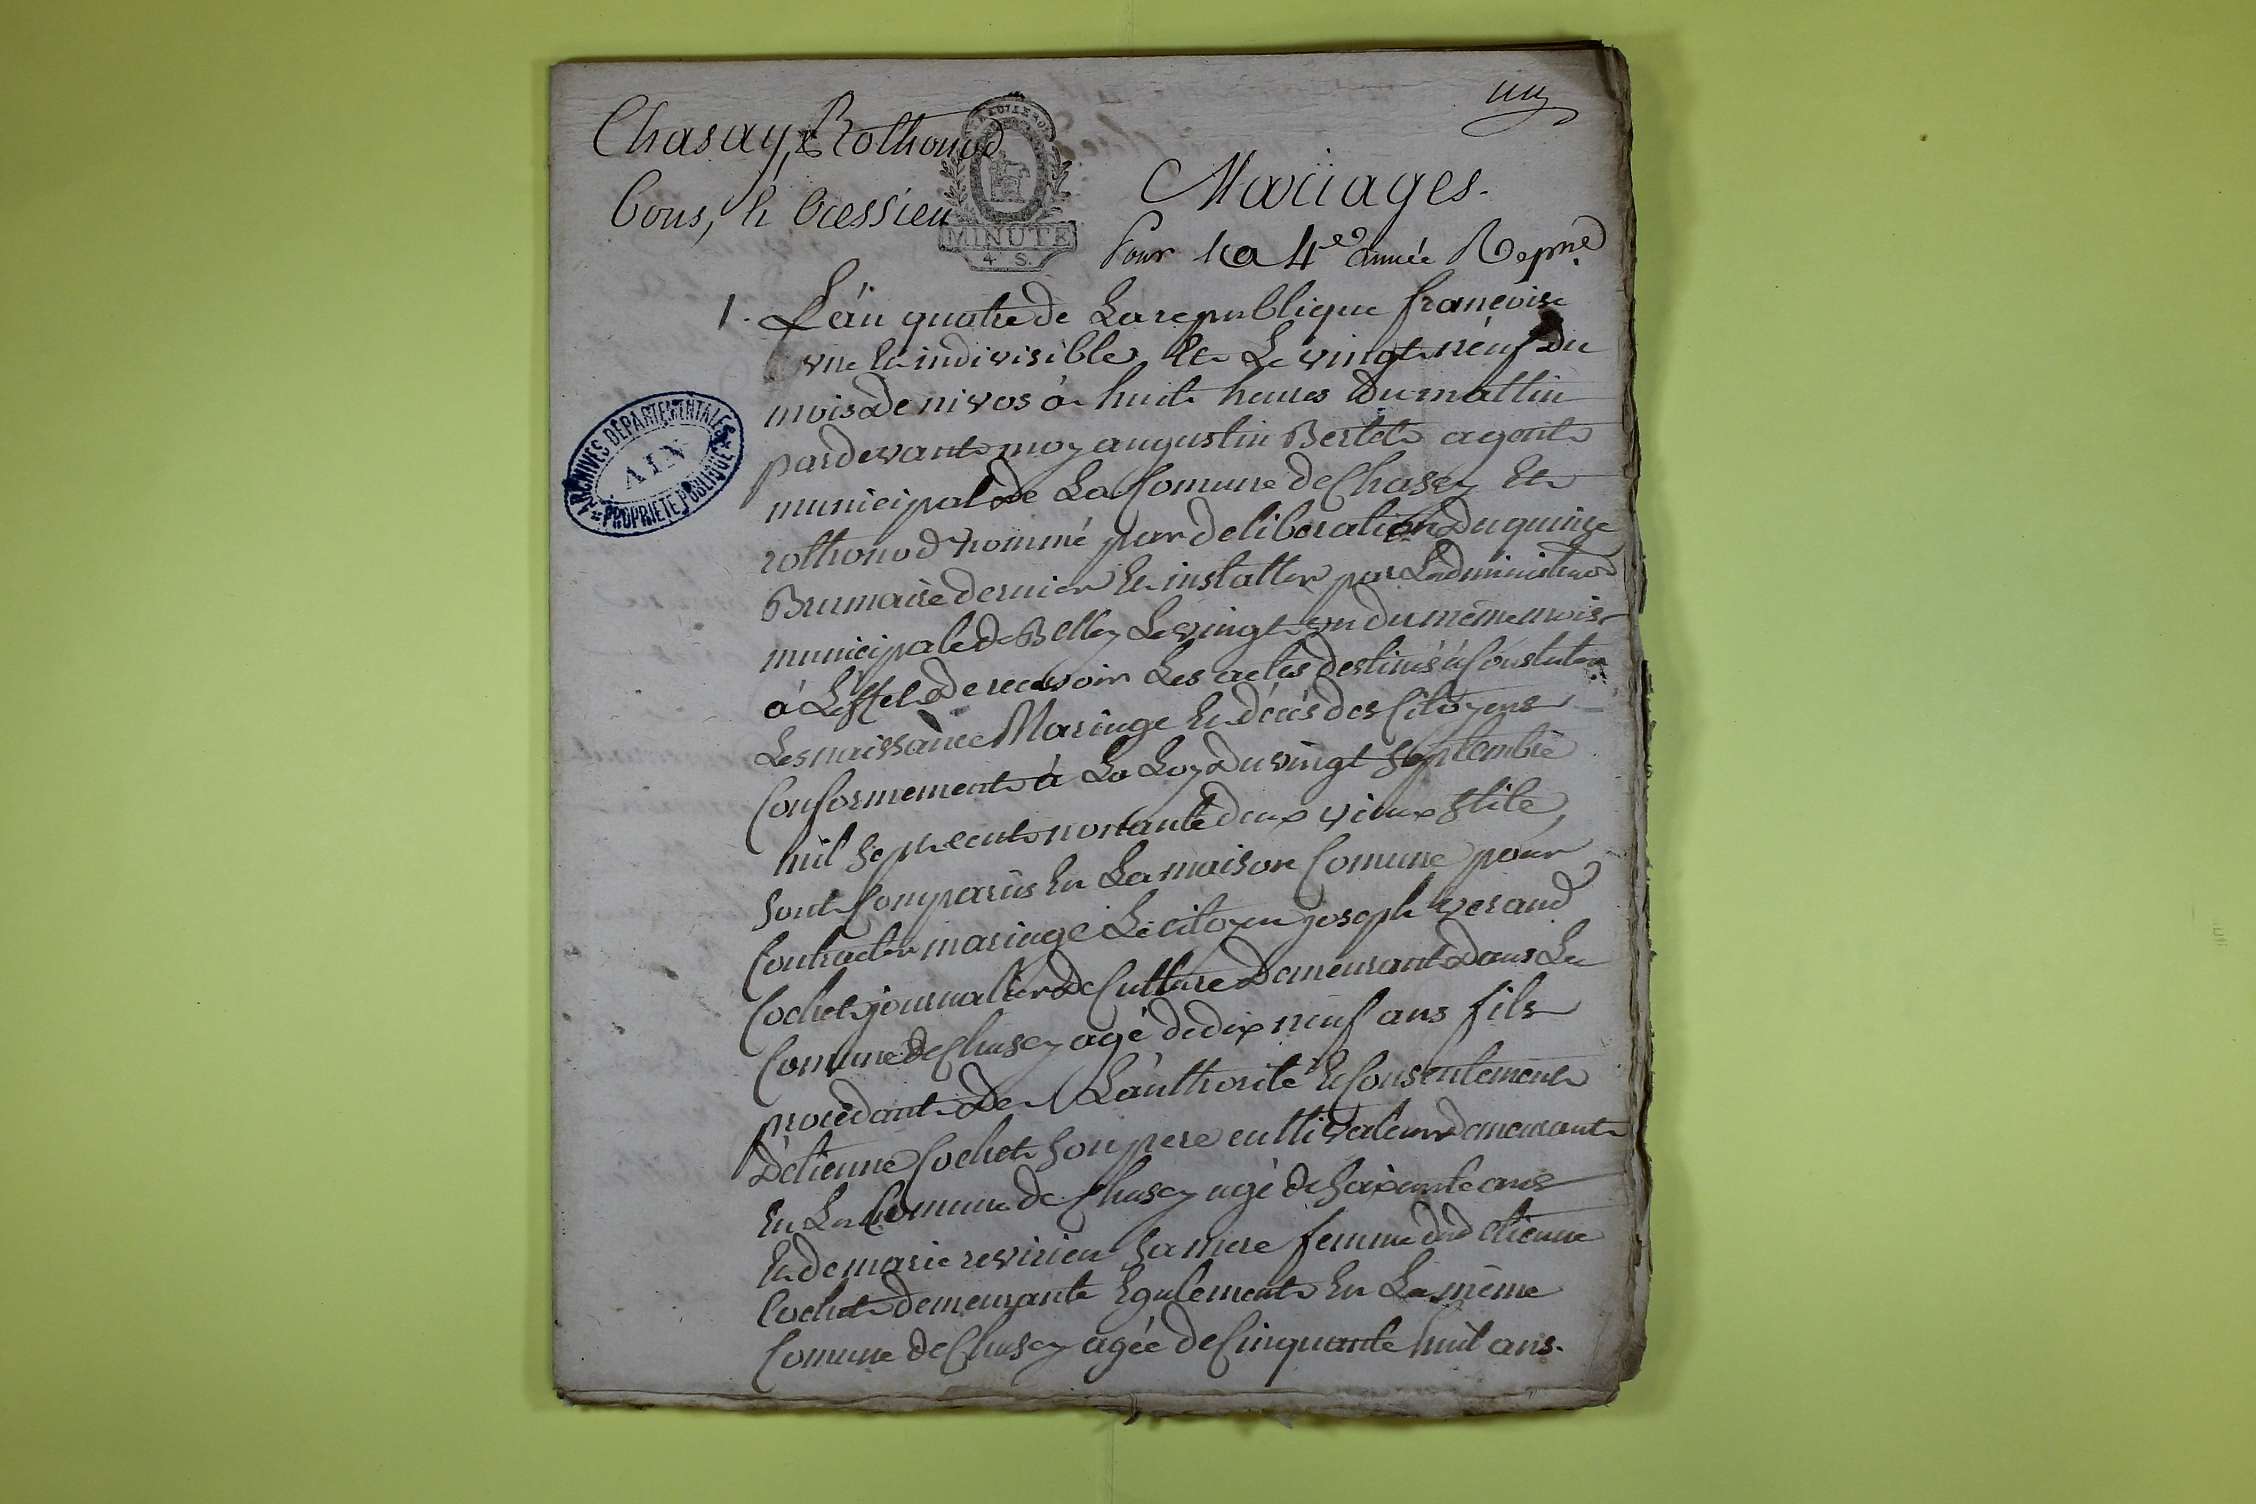 un
Chasay, & Rothonod
Cons, & Bressieu
MINUTE
4 S.
Mariages.
Pour la 4e année Repne
ARCHIVES DEPARTEMENTALES
AIN
PROPRIETE PUBLIQUE
1. L'an quatre de La republique françoise
vne Et indivisible Et Le vingt neuf du
mois de nivos à huit heures du mattin
pardevant moy augustin Bertet agent
municipal de La Comune de Chasey Et
rothonod nommé par deliberation du quinze
Brumaire dernier Et installer par Ladministraon
municipale de Belley Le vingt vn du même mois
à Leffet de recevoir Les actes destinés à Constater
Les naissance Mariage Et décès des Citoyens
Conformement à La Loy du vingt Septembre
mil Sept cent nonante deux vieux Stile,
Sont Comparus En La maison Comune pour
Contracter mariage Le citoyen joseph verand
Cochet journalier de Culture Demeurant Dans La
Comune de Chasey agé de dix neuf ans fils
procédant De L'authorité Et Consentement
D'etienne Cochet Son pere cultivateur demeurant
En La Comune de Chasey agé de Soixante ans
Et de marie revirien Sa mere femme dud etienne
Cochet demeurante Egalement En La même
Comune de Chasey agée de Cinquante huit ans.